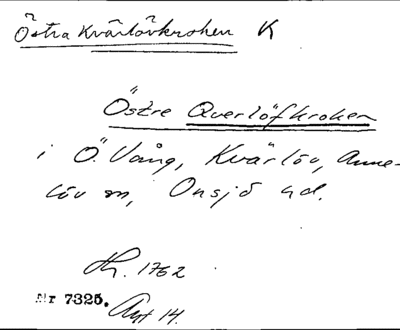 Östra Kvärlövkroken K
Östre Querlöfkroken
i Ö. Vång, Kvärlöv, Anne-
löv sn, Onsjö hd.
Th. 1762
Nr 7325.
Akt 14.